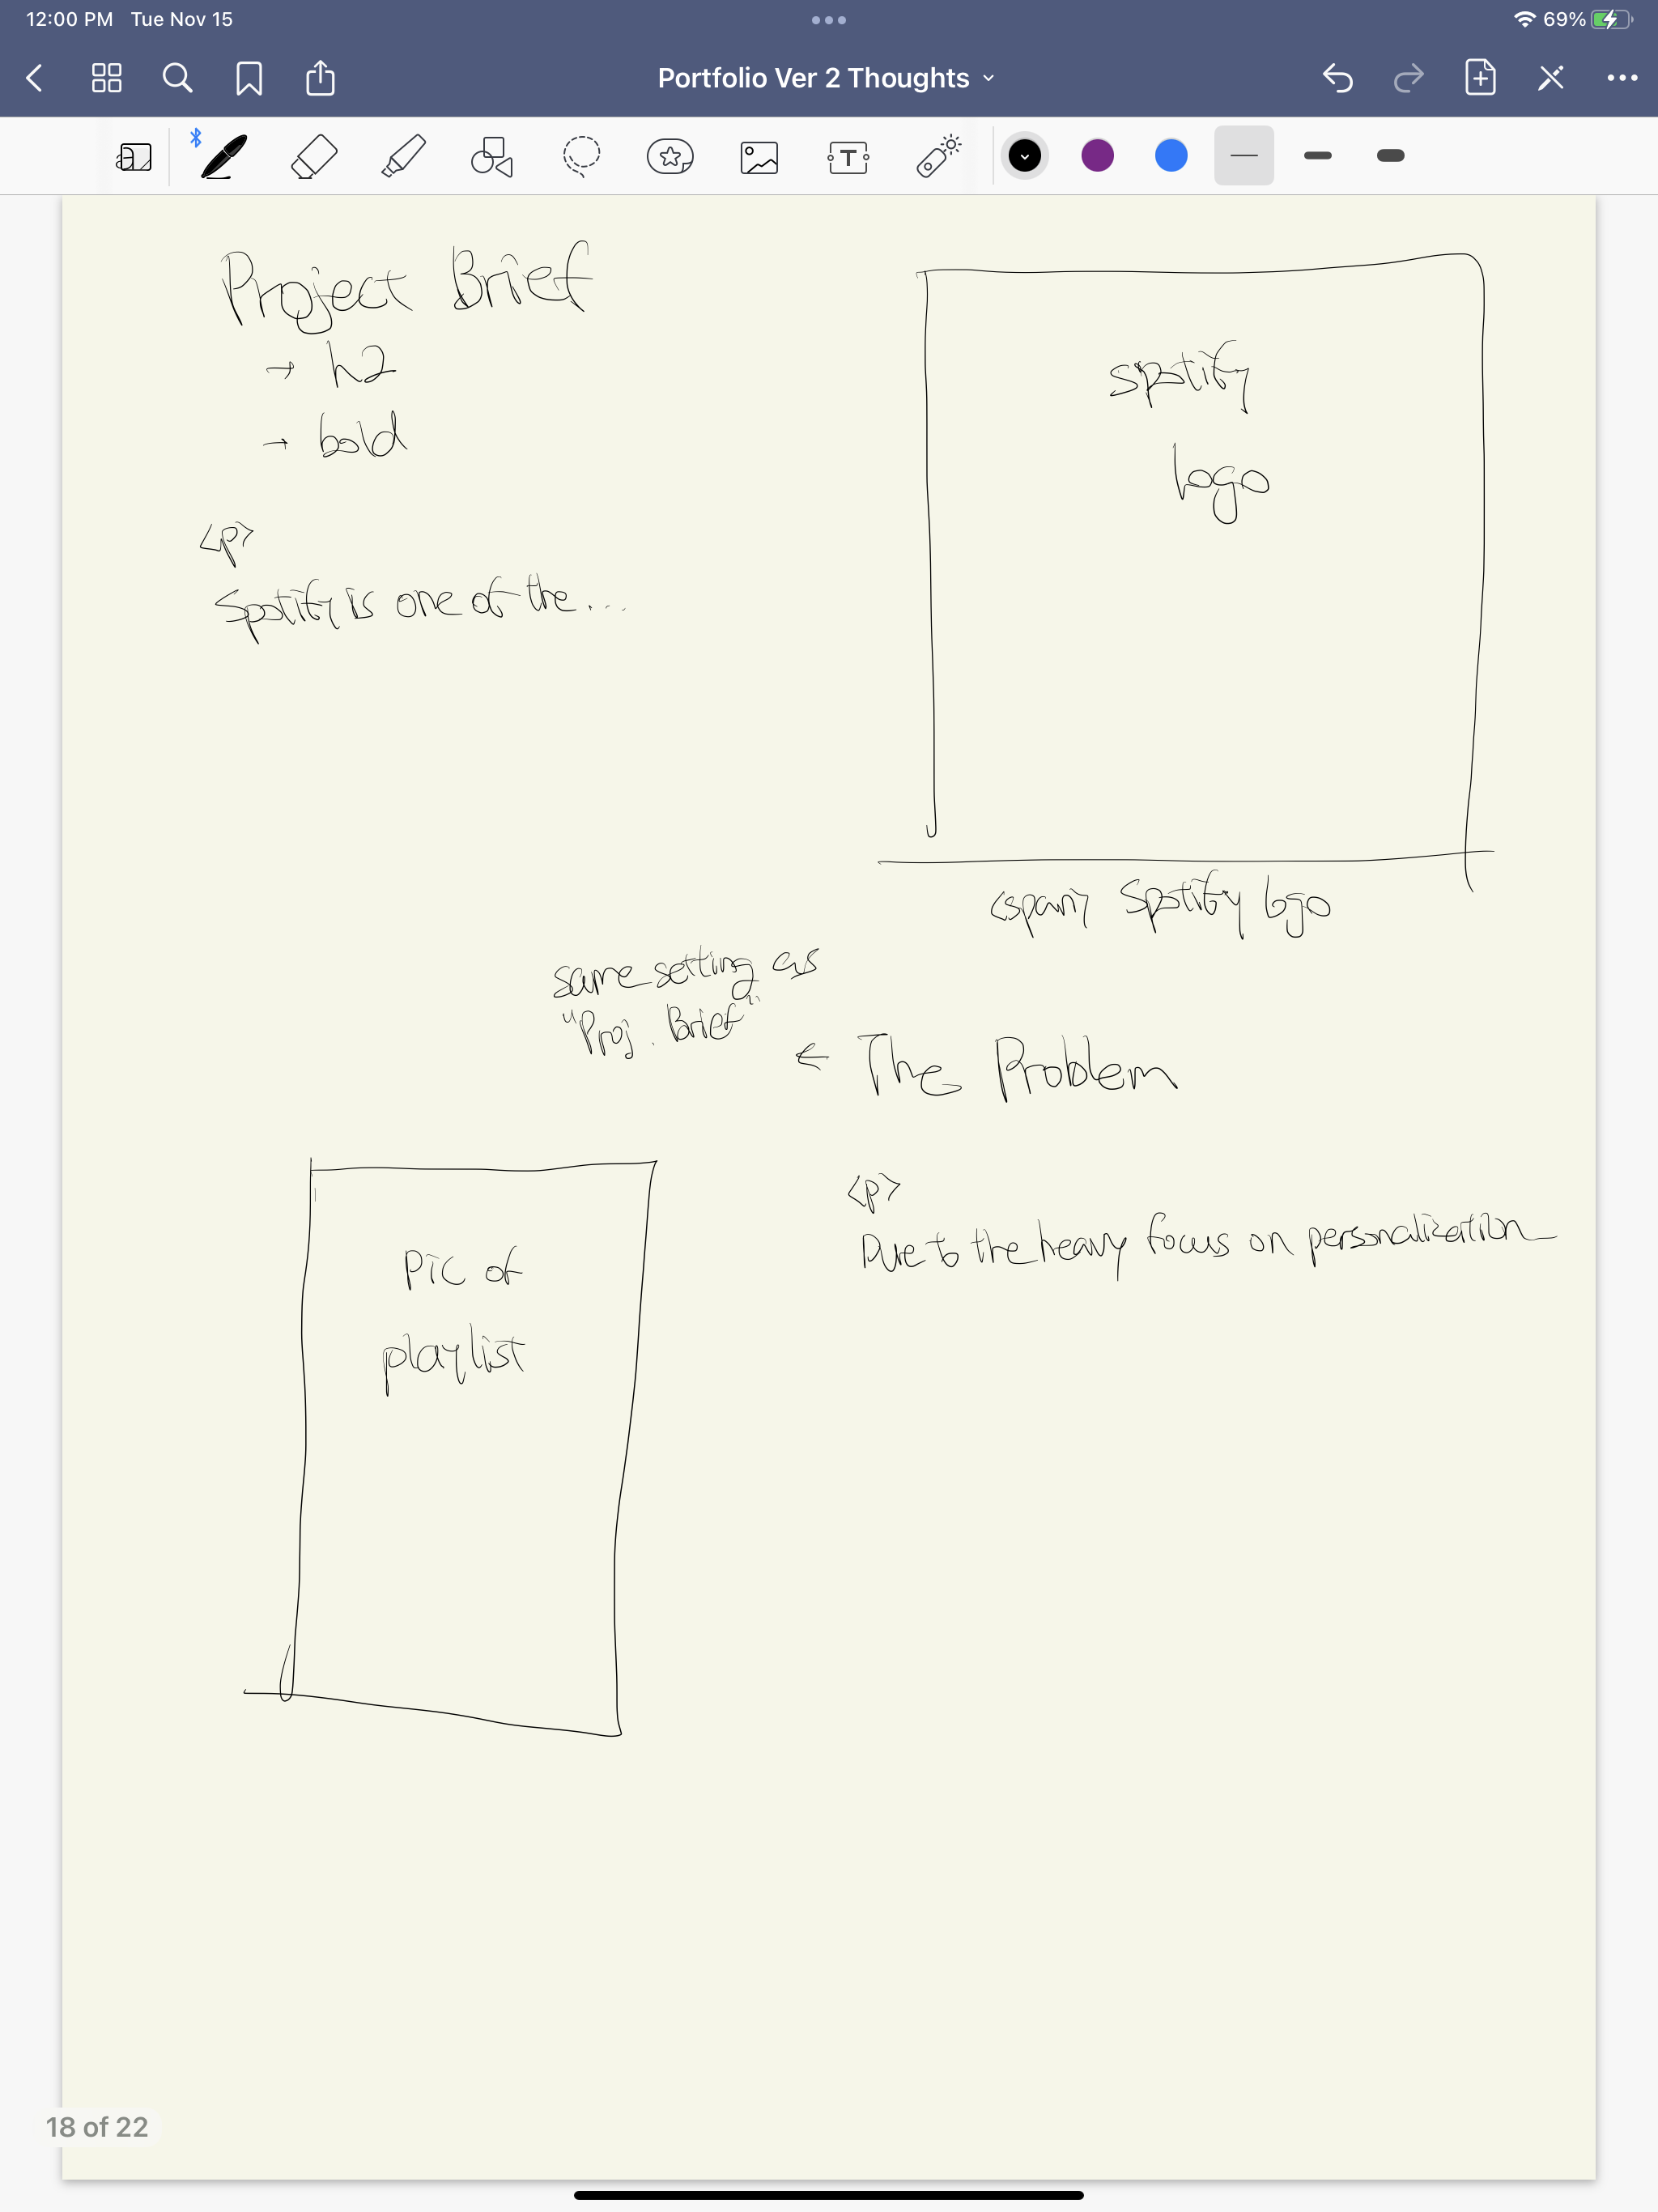 12:00 PM Tue Nov 15
69%
Portfolio Ver 2 Thoughts
Project Brief
→ h2
→ bold
<p>
Spotify is one of the...
spotify
logo
<span> Spotify logo
same setting as
"Proj. Brief"
← The Problem
<p>
Due to the heavy focus on personalization
Pic of
playlist
18 of 22